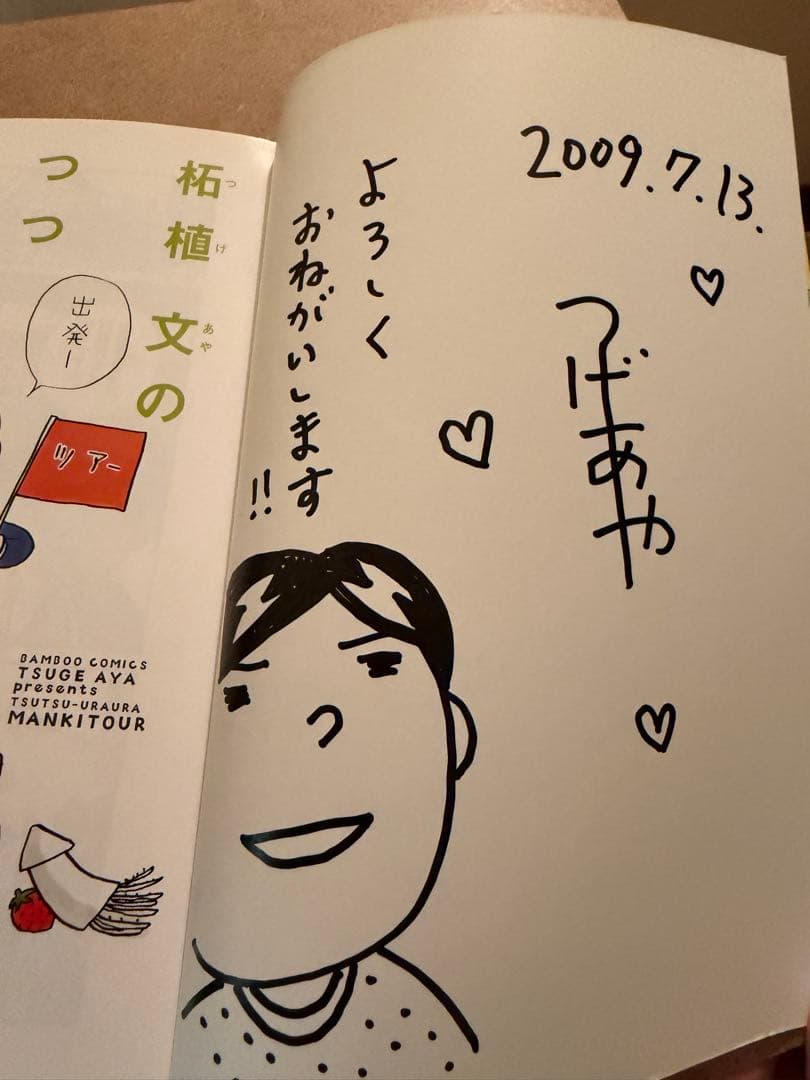 2009.7.13.
つげあや
よろしく
おねがいします
!!
柘植文の
つげあや
つつ
出発ー
ツアー
BAMBOO COMICS
TSUGE AYA
presents
TSUTSU-URAURA
MANKITOUR